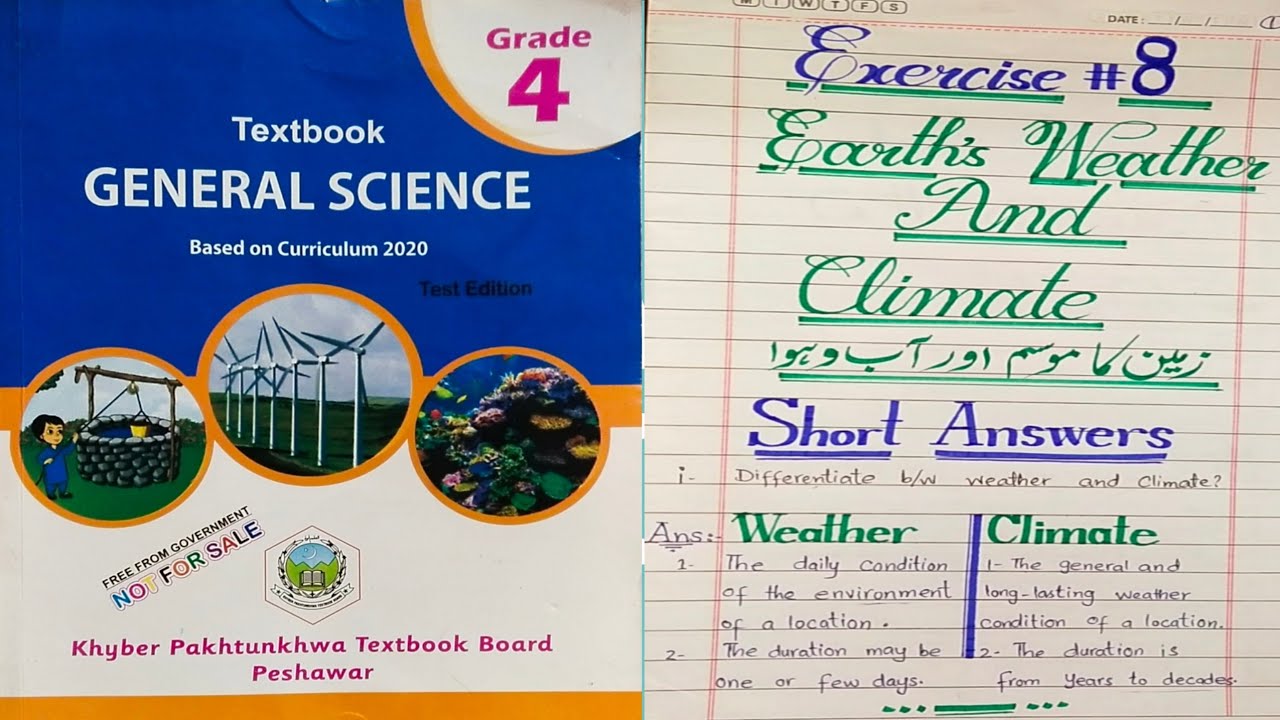 Grade
4
Textbook
GENERAL SCIENCE
Based on Curriculum 2020
Test Edition
FREE FROM GOVERNMENT
NOT FOR SALE
Khyber Pakhtunkhwa Textbook Board
Peshawar
M T W T F S
DATE: __/__/__ 1
Exercise #8
Earth's Weather
And
Climate
زمین کا موسم اور آب و ہوا
Short Answers
i- Differentiate b/w weather and Climate?
Ans:- Weather | Climate
1- The daily condition | 1- The general and
of the environment | long-lasting weather
of a location. | condition of a location.
2- The duration may be | 2- The duration is
one or few days. from years to decades.